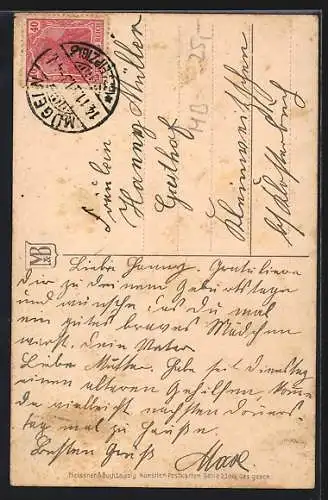 40
MÜGELN
(BZ. LEIPZIG)
14.11.
Fräulein
Hanny Müller
Gasthof
Kleinweitzschen
HB - 25,-
M&B
Liebe Hanny. Gratuliere
dir zu deinem Geburtstage
und wünsche das du mal
ein gutes braves Mädchen
wirst. Dein Vater
Liebe Mutter. Habe seit Dienstag
einen älteren Gehilfen, komme
da vielleicht nächsten Donners-
tag mal zu Hause.
Besten Gruß Max
Meissner & Buch, Leipzig Künstler-Postkarten Serie Ges. gesch.